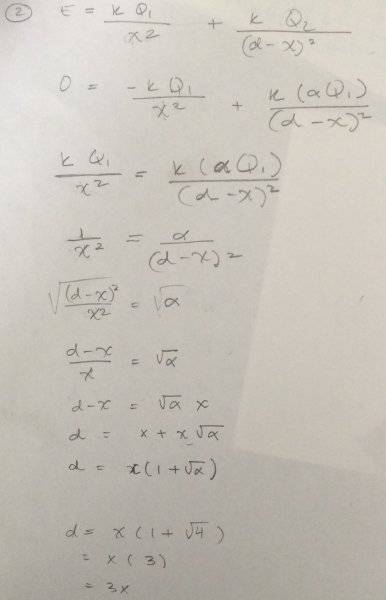 ② E = k Q₁ / x² + k Q₂ / (d-x)²
0 = -k Q₁ / x² + k (αQ₁) / (d-x)²
k Q₁ / x² = k (αQ₁) / (d-x)²
1 / x² = α / (d-x)²
√((d-x)² / x²) = √α
d-x / x = √α
d-x = √α x
d = x + x √α
d = x(1+√α)
d = x (1 + √4)
= x (3)
= 3x